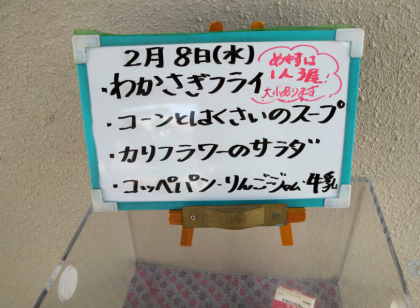 2月8日(水)
・わかさぎフライ
めやすは
1人3尾!
大小あります
・コーンとはくさいのスープ
・カリフラワーのサラダ
・コッペパン・りんごジャム・牛乳